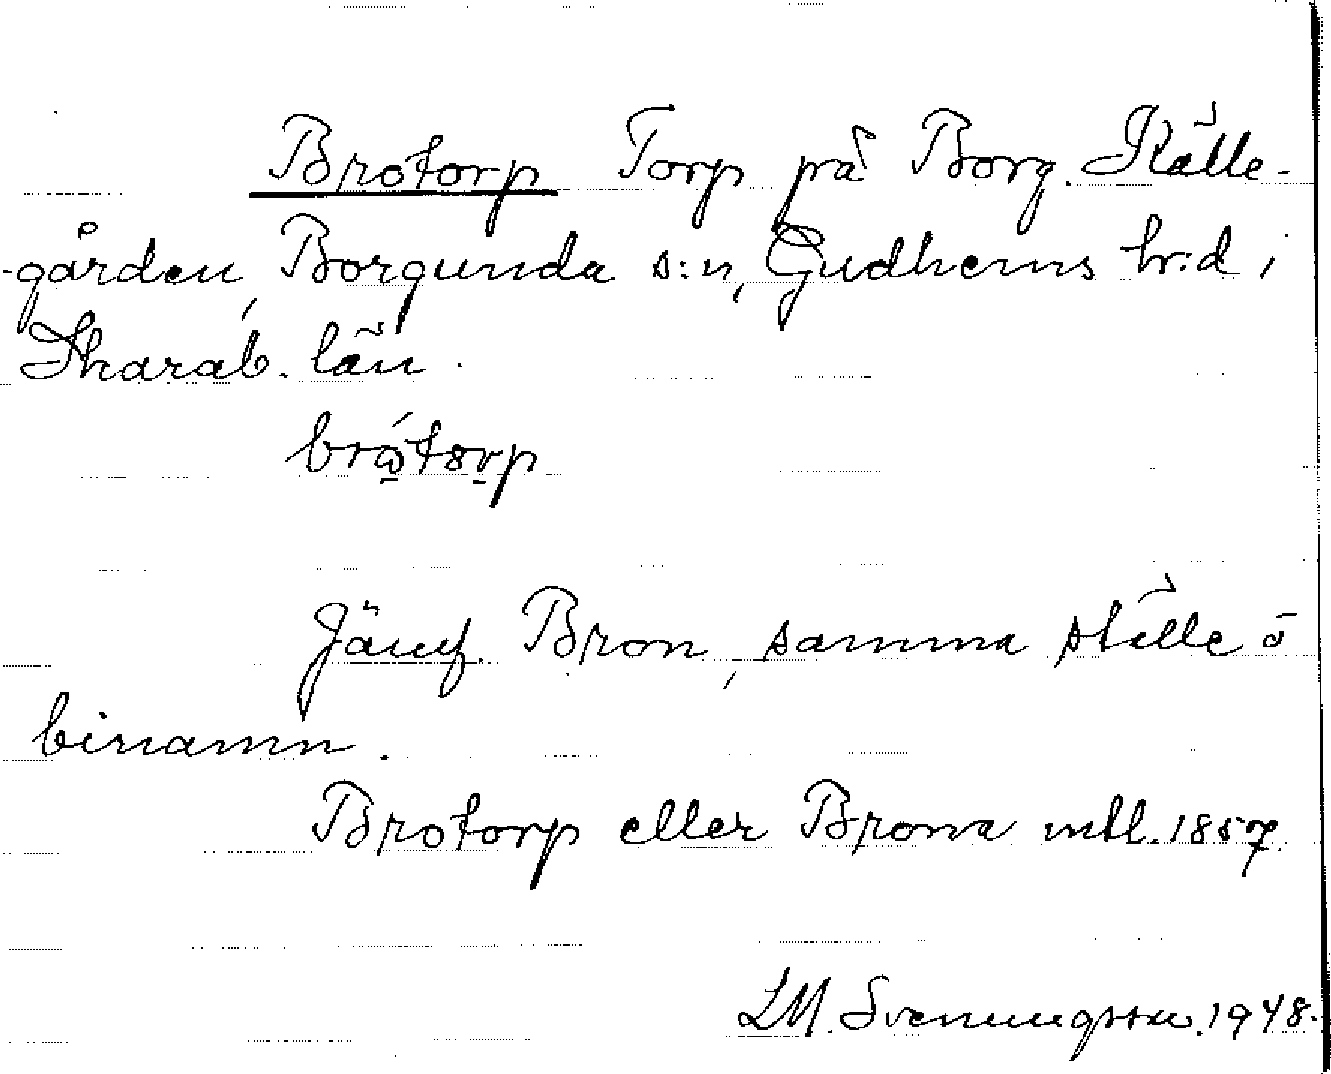 Brotorp Torp på Borg. Källe-
-gården, Borgunda s:n, Gudhems hr:d i
Skarab. län.
brótorp
Jämf. Bron, samma ställe o
binamn.
Brotorp eller Brona mtl. 1857.
LM. Svenungsson. 1948.